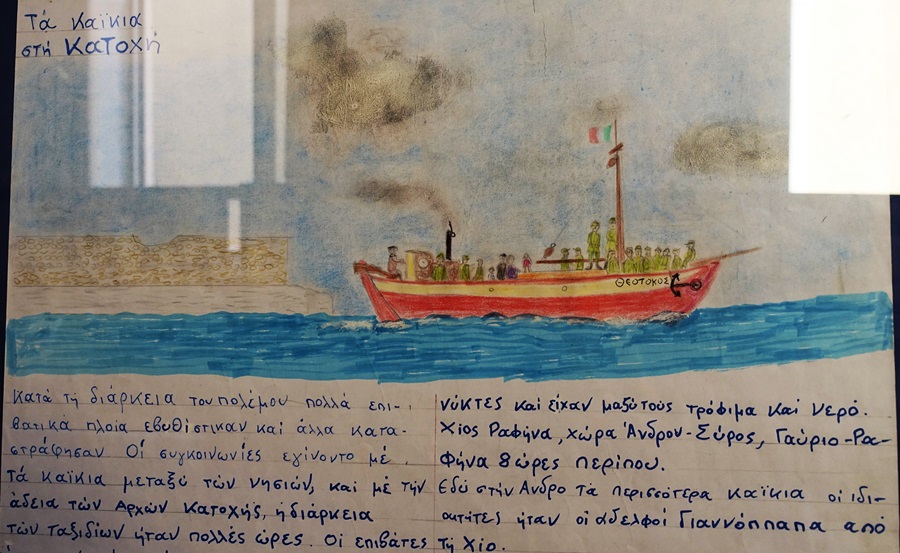 Τά καϊκια
στή Κατοχή
ΘΕΟΤΟΚΟΣ
κατά τή διάρκεια του πολέμου πολλά επι-
βατικά πλοία εβυθίστικαν και άλλα κατα-
στράφησαν Οί συγκοινωνίες εγίνοντο μέ
τά καϊκια μεταξύ τών νησιών, και μέ τήν
άδεια τών Αρχών Κατοχής, ή διάρκεια
τών ταξιδίων ήταν πολλές ώρες. Οί επιβάτες
νύκτες καί είχαν μαζύ τους τρόφιμα καί νερό.
Χίος Ραφήνα, χώρα Άνδρου-Σύρος, Γαύριο-Ρα-
φήνα 8 ώρες περίπου.
Εδώ στήν Ανδρο τά περισσότερα καϊκια οι ιδι-
οκτίτες ήταν οι αδελφοί Γιαννόππαπα από
τή Χίο.